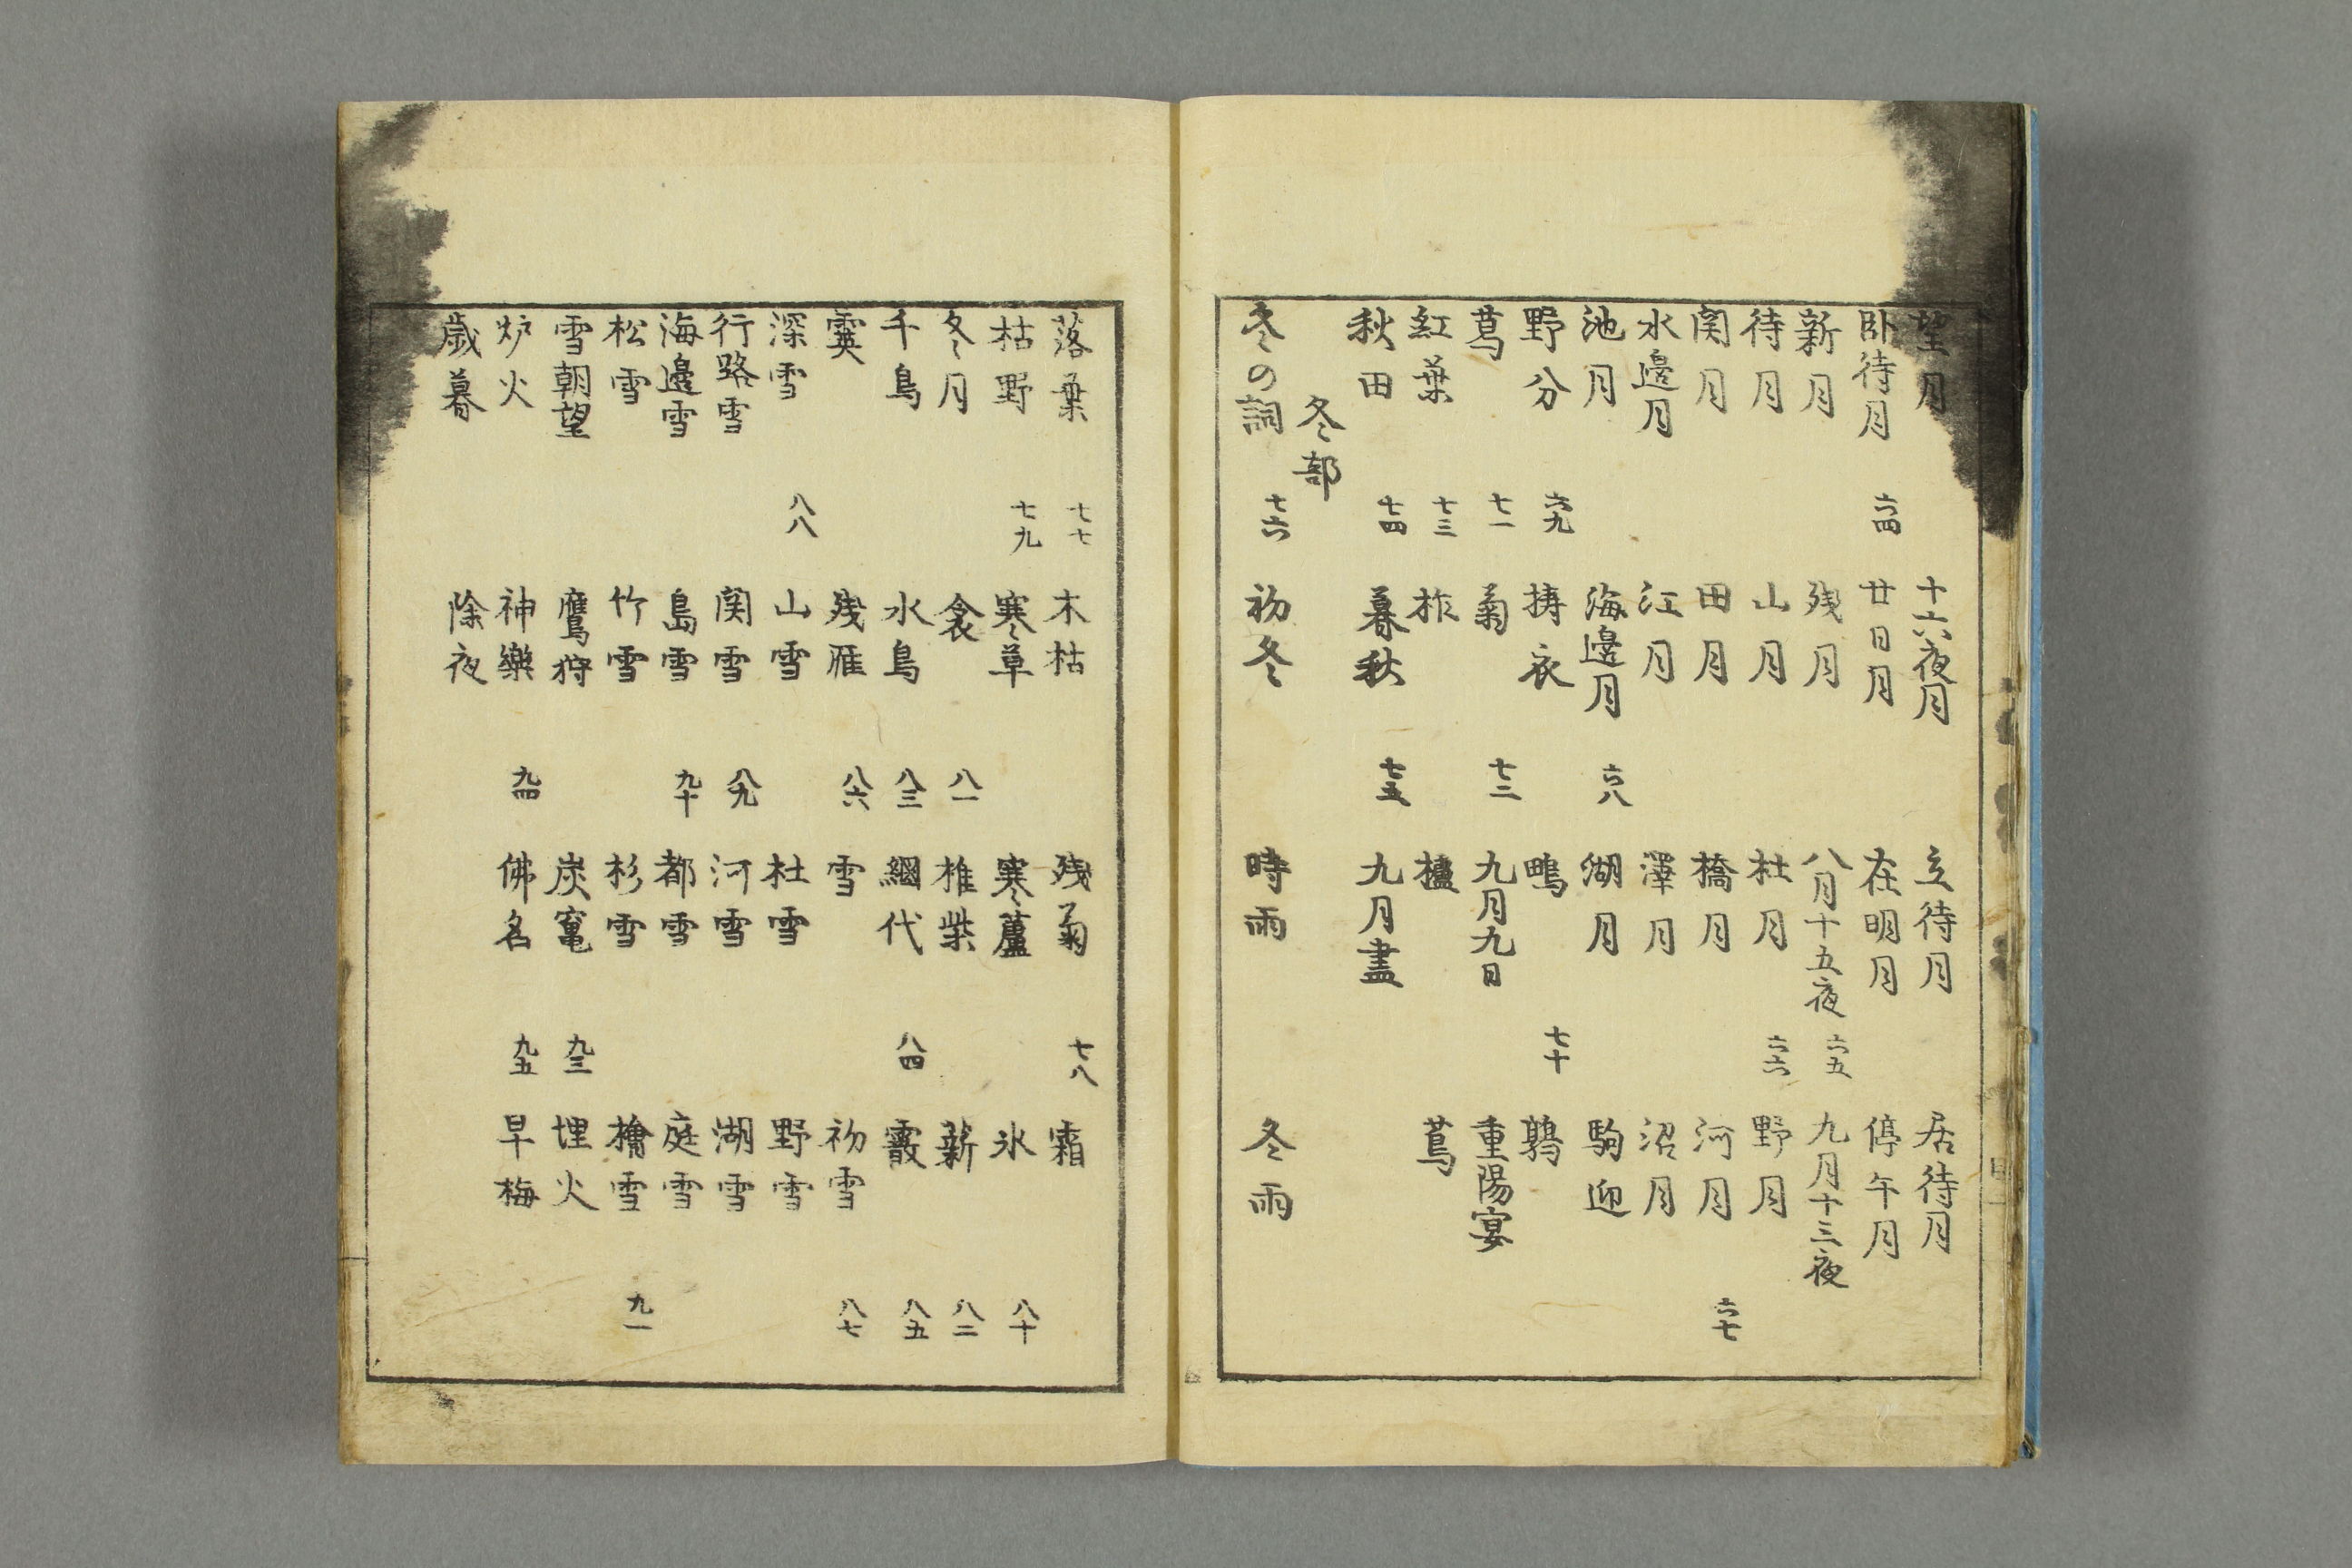 望月 十六夜月 立待月 居待月
卧待月 六四 廿日月 在明月 停午月
新月 残月 八月十五夜 六五 九月十三夜
待月 山月 杜月 六六 野月
関月 田月 橋月 河月 六七
水邊月 江月 澤月 沼月
池月 海邊月 六八 湖月 駒迎
野分 六九 擣衣 鴫 七十 鶉
葛 七一 菊 七二 九月九日 重陽宴
紅葉 七三 柞 櫨 蔦
秋田 七四 暮秋 七五 九月盡
冬部
冬の詞 七六 初冬 時雨 冬雨
落葉 七七 木枯 残菊 七八 霜
枯野 七九 寒草 寒蘆 氷 八十
冬月 衾 八一 椎柴 薪 八二
千鳥 水鳥 八三 網代 八四 霰 八五
霙 残雁 八六 雪 初雪 八七
深雪 八八 山雪 杜雪 野雪
行路雪 関雪 八九 河雪 湖雪
海邊雪 島雪 九十 都雪 庭雪
松雪 竹雪 杉雪 檜雪 九一
雪朝望 鷹狩 炭竃 九三 埋火
炉火 神樂 九四 佛名 九五 早梅
歳暮 除夜